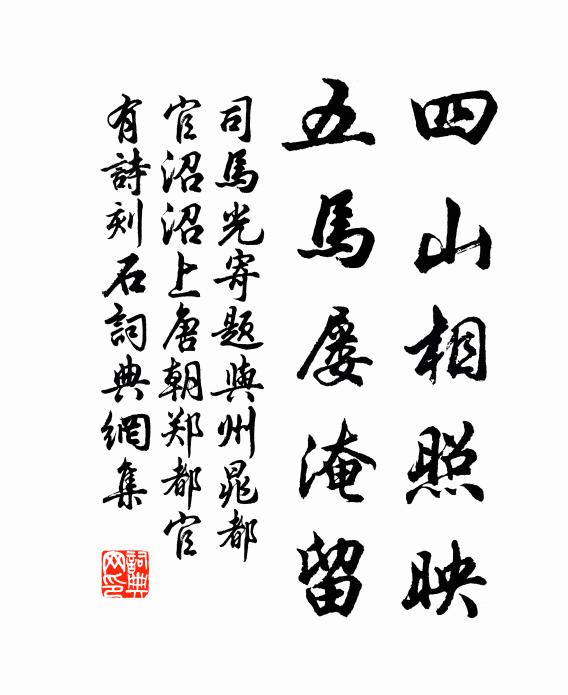 四山相照映
五馬屡淹留
司馬光寄題與州晁都
官沼沼上唐朝郑都官
有詩刻石詞典網集
詞典網印